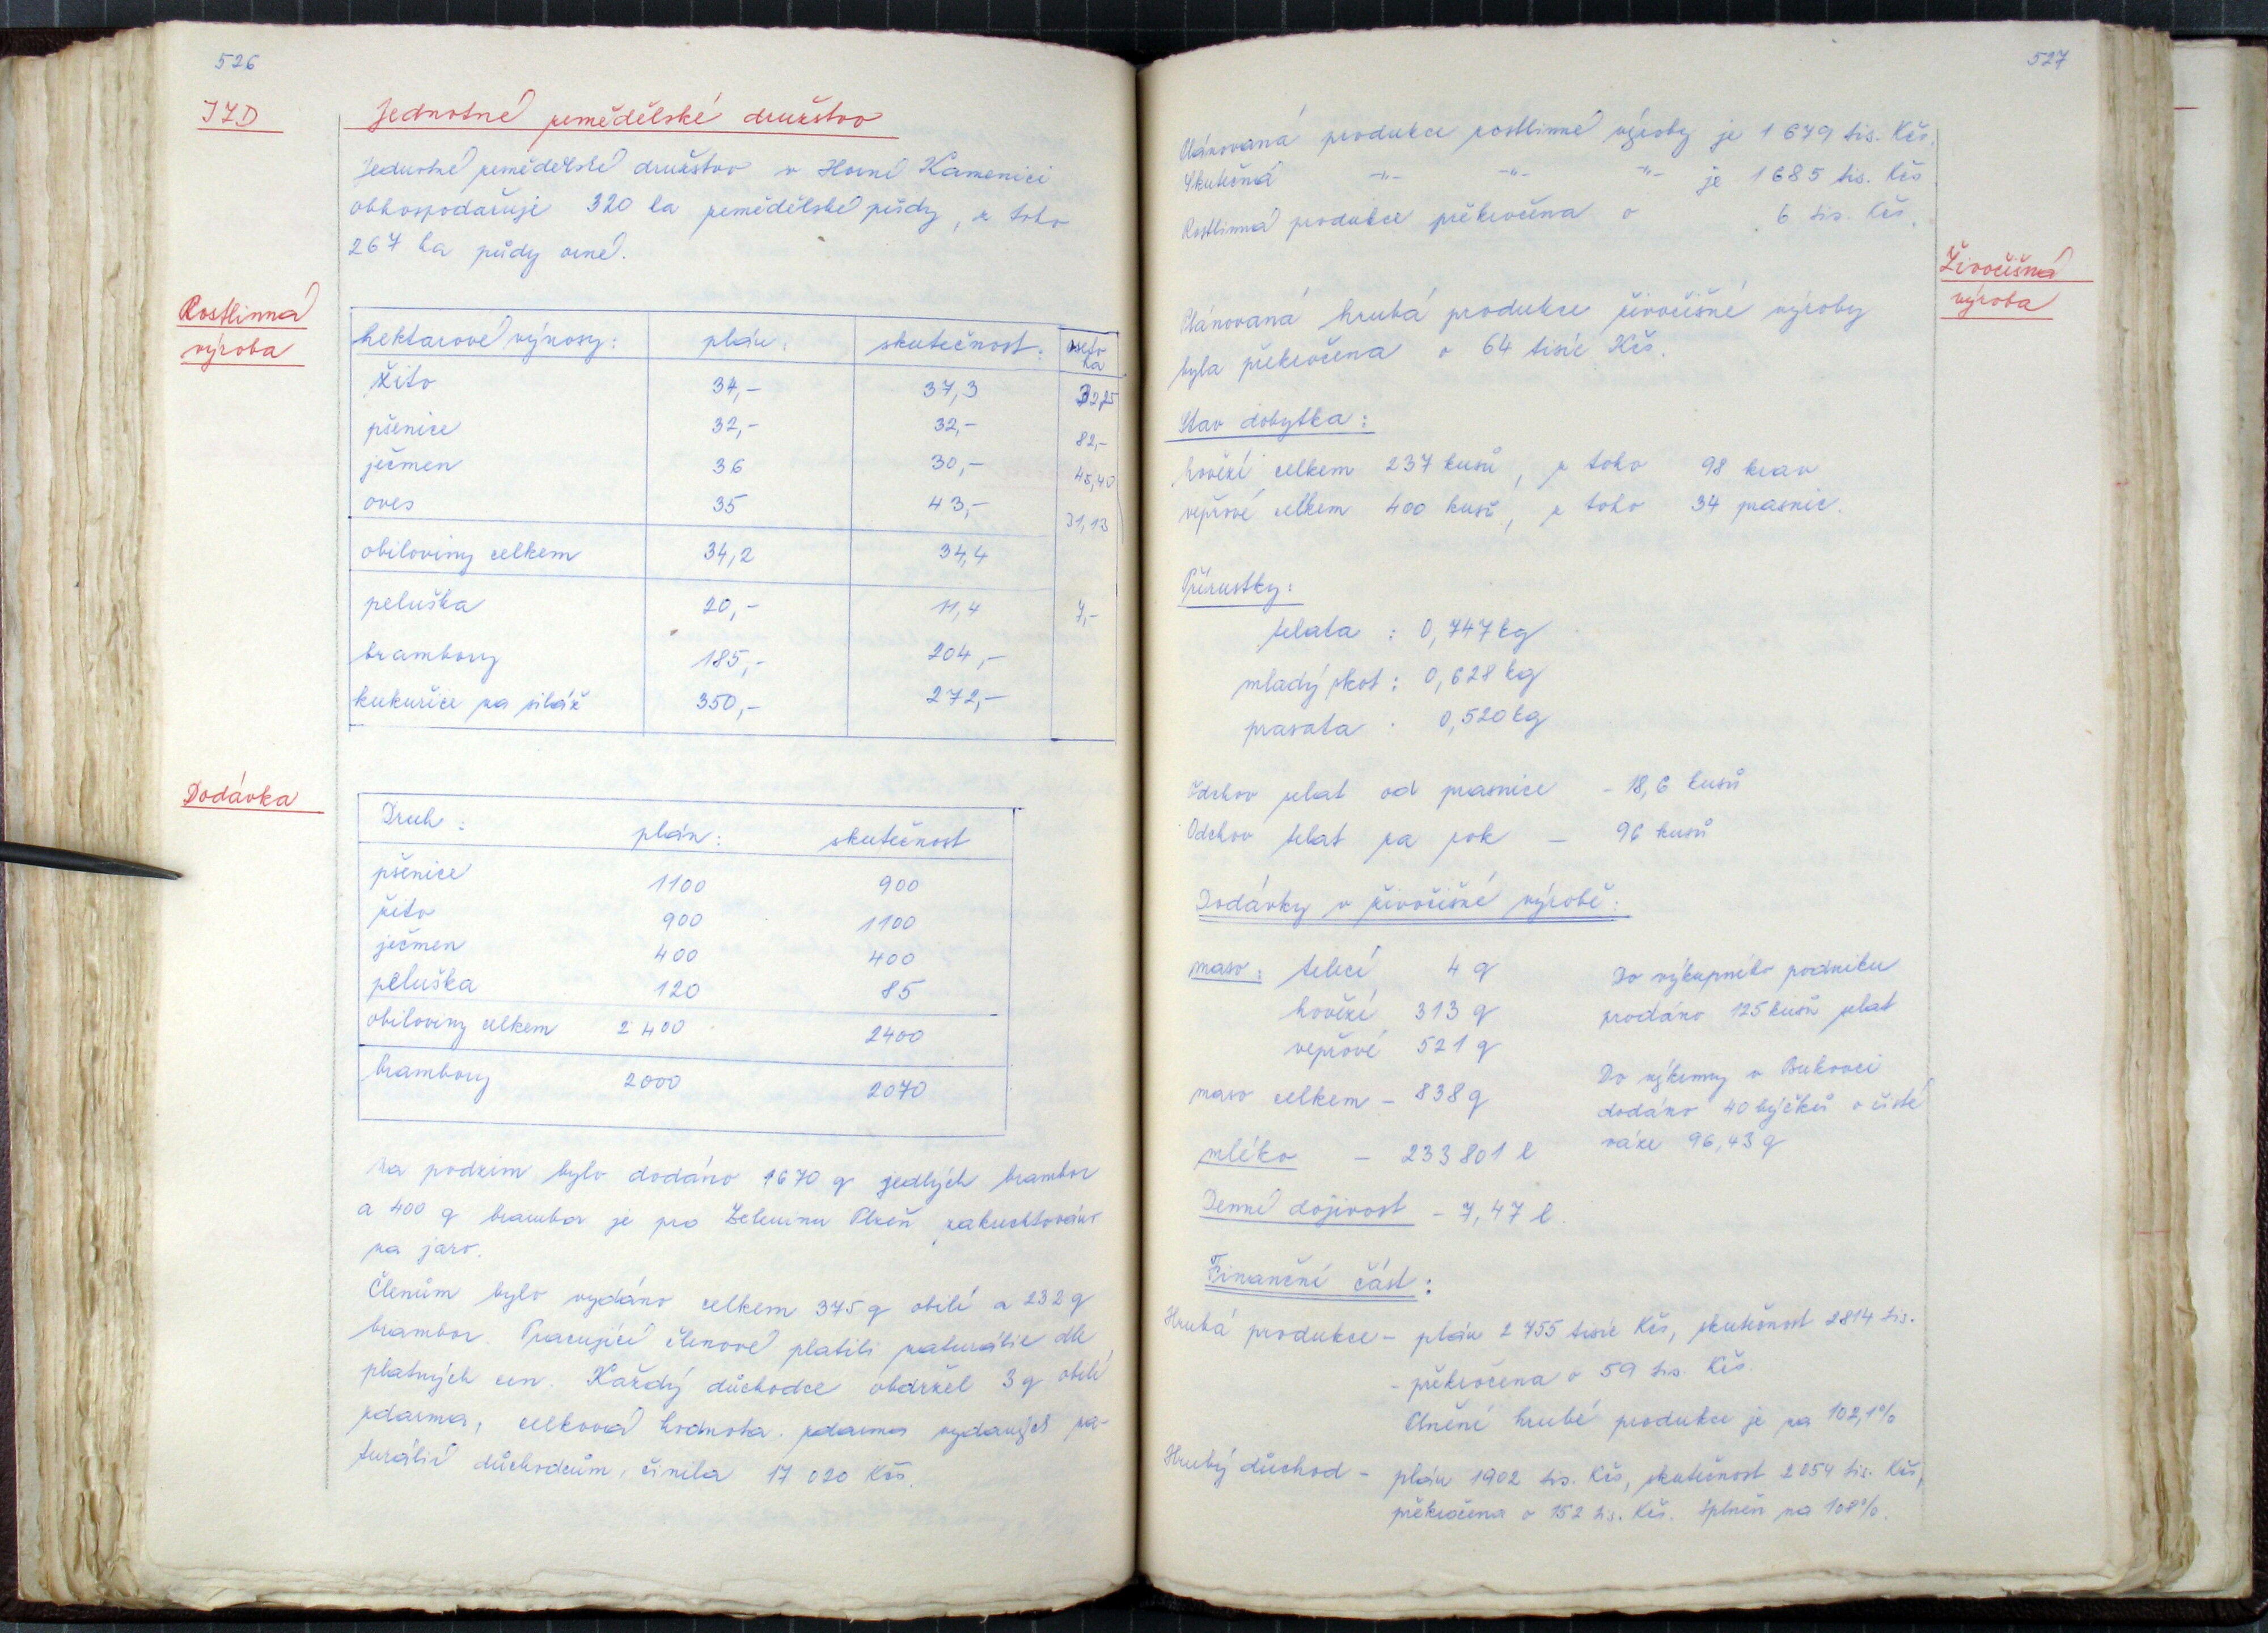 526
JZD
Jednotné zemědělské družstvo
Jednotné zemědělské družstvo v Horní Kamenici
obhospodařuje 320 ha zemědělské půdy, z toho
267 ha půdy orné.
Rostlinná
výroba
hektarové výnosy: plán: skutečnost: oseto ha
žito 34,- 37,3
pšenice 32,- 32,- 82,-
ječmen 36 30,- 45,40
oves 35 43,- 31,13
obiloviny celkem 34,2 34,4
peluška 20,- 11,4 7,-
brambory 185,- 204,-
kukuřice na siláž 350,- 272,-
Dodávka
Druh: plán: skutečnost
pšenice 1100 900
žito 900 1100
ječmen 400 400
peluška 120 85
obiloviny celkem 2400 2400
brambory 2000 2070
Na podzim bylo dodáno 1670 q jedlých brambor
a 400 q brambor je pro Zeleninu Plzeň zakuchtováno
na jaro.
Členům bylo vydáno celkem 375 q obilí a 232 q
brambor. Pracující členové platili naturálie dle
platných cen. Každý důchodce obdržel 3 q obilí
zdarma, celková hodnota zdarma vydaných na-
turálií důchodcům, činila 17 020 Kčs.
527
Plánovaná produkce rostlinné výroby je 1 679 tis. Kčs.
Skutečná -"- -"- -"- je 1 685 tis. Kčs
Rostlinná produkce překročena o 6 tis. Kčs.
Živočišná
výroba
Plánovaná hrubá produkce živočišné výroby
byla překročena o 64 tisíc Kčs.
Stav dobytka:
hovězí celkem 237 kusů, z toho 98 krav
vepřové celkem 400 kusů, z toho 34 prasnic.
Přírustky:
telata : 0,747 kg
mladý skot : 0,628 kg
prasata : 0,520 kg
Odchov selat od prasnice - 18,6 kusů
Odchov telat za rok - 96 kusů
Dodávky v živočišné výrobě:
maso: telecí 4 q
hovězí 313 q
vepřové 521 q
maso celkem - 838 q
mléko - 233 801 l
Do výkupního podniku
prodáno 125 kusů selat
Do výkrmny v Bukovci
dodáno 40 býčků o čisté
váze 96,43 q
Denní dojivost - 7,47 l.
Finanční část:
Hrubá produkce - plán 2 755 tisíc Kčs, skutečnost 2814 tis.
- překročena o 59 tis. Kčs.
Plnění hrubé produkce je na 102,1%
Hrubý důchod - plán 1902 tis. Kčs, skutečnost 2054 tis. Kčs,
překročena o 152 tis. Kčs. Splněn na 108%.